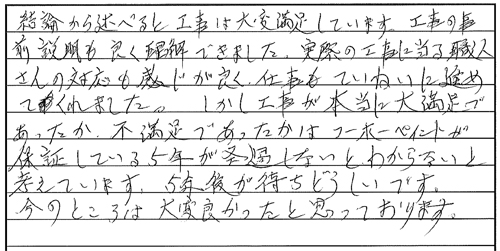 結論から述べると工事は大変満足しています。工事の事
前説明も良く理解できました。実際の工事に当る職人
さんの対応も感じが良く、仕事もていねいに進め
てくれました。しかし工事が本当に大満足で
あったか、不満足であったかはユーホーペイントが
保証している5年が経過しないとわからないと
考えています。5年後が待ちどうしいです。
今のところは大変良かったと思っております。